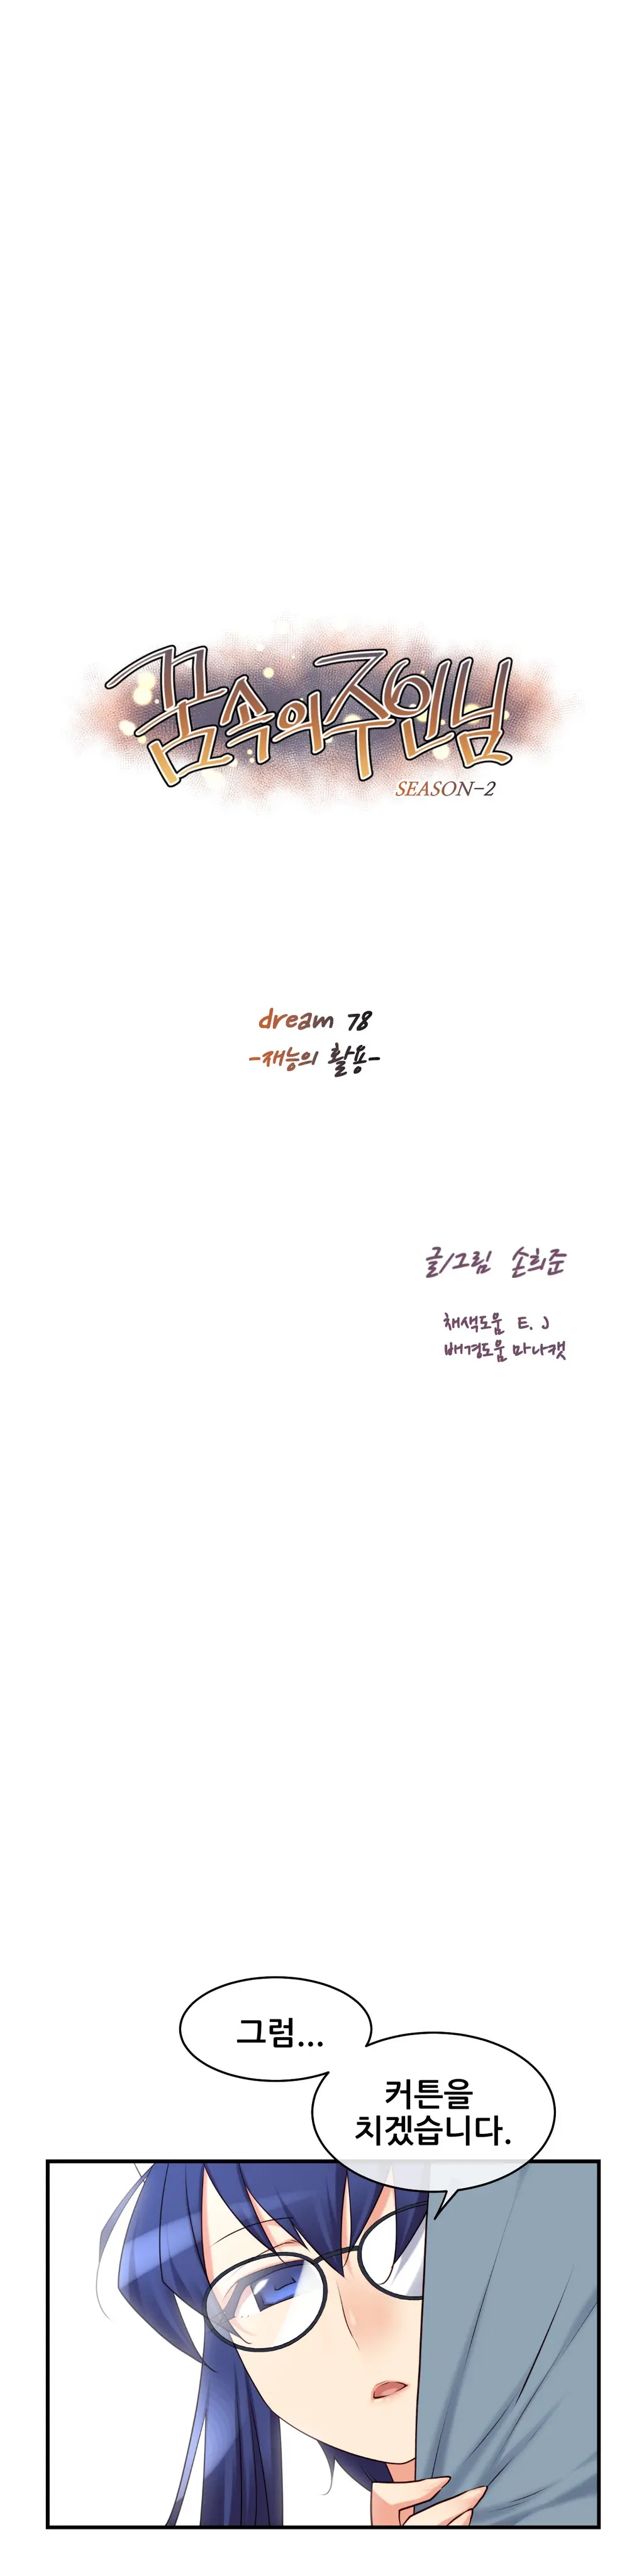 꿈속의 주인님
SEASON-2
dream 78
-재능의 활용-
글/그림 손희준
채색도움 E. J
배경도움 마나캣
그럼...
커튼을
치겠습니다.